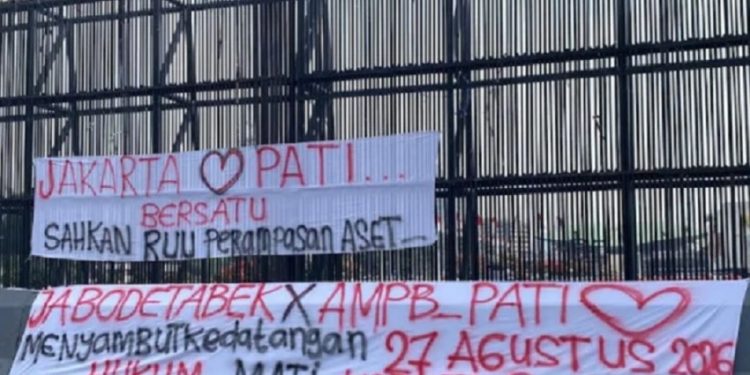 JAKARTA ♡ PATI...
BERSATU
SAHKAN RUU PERAMPASAN ASET_
JABODETABEK X AMPB_PATI ♡
MENYAMBUT KEDATANGAN 27 AGUSTUS 2026
HUKUM MATI